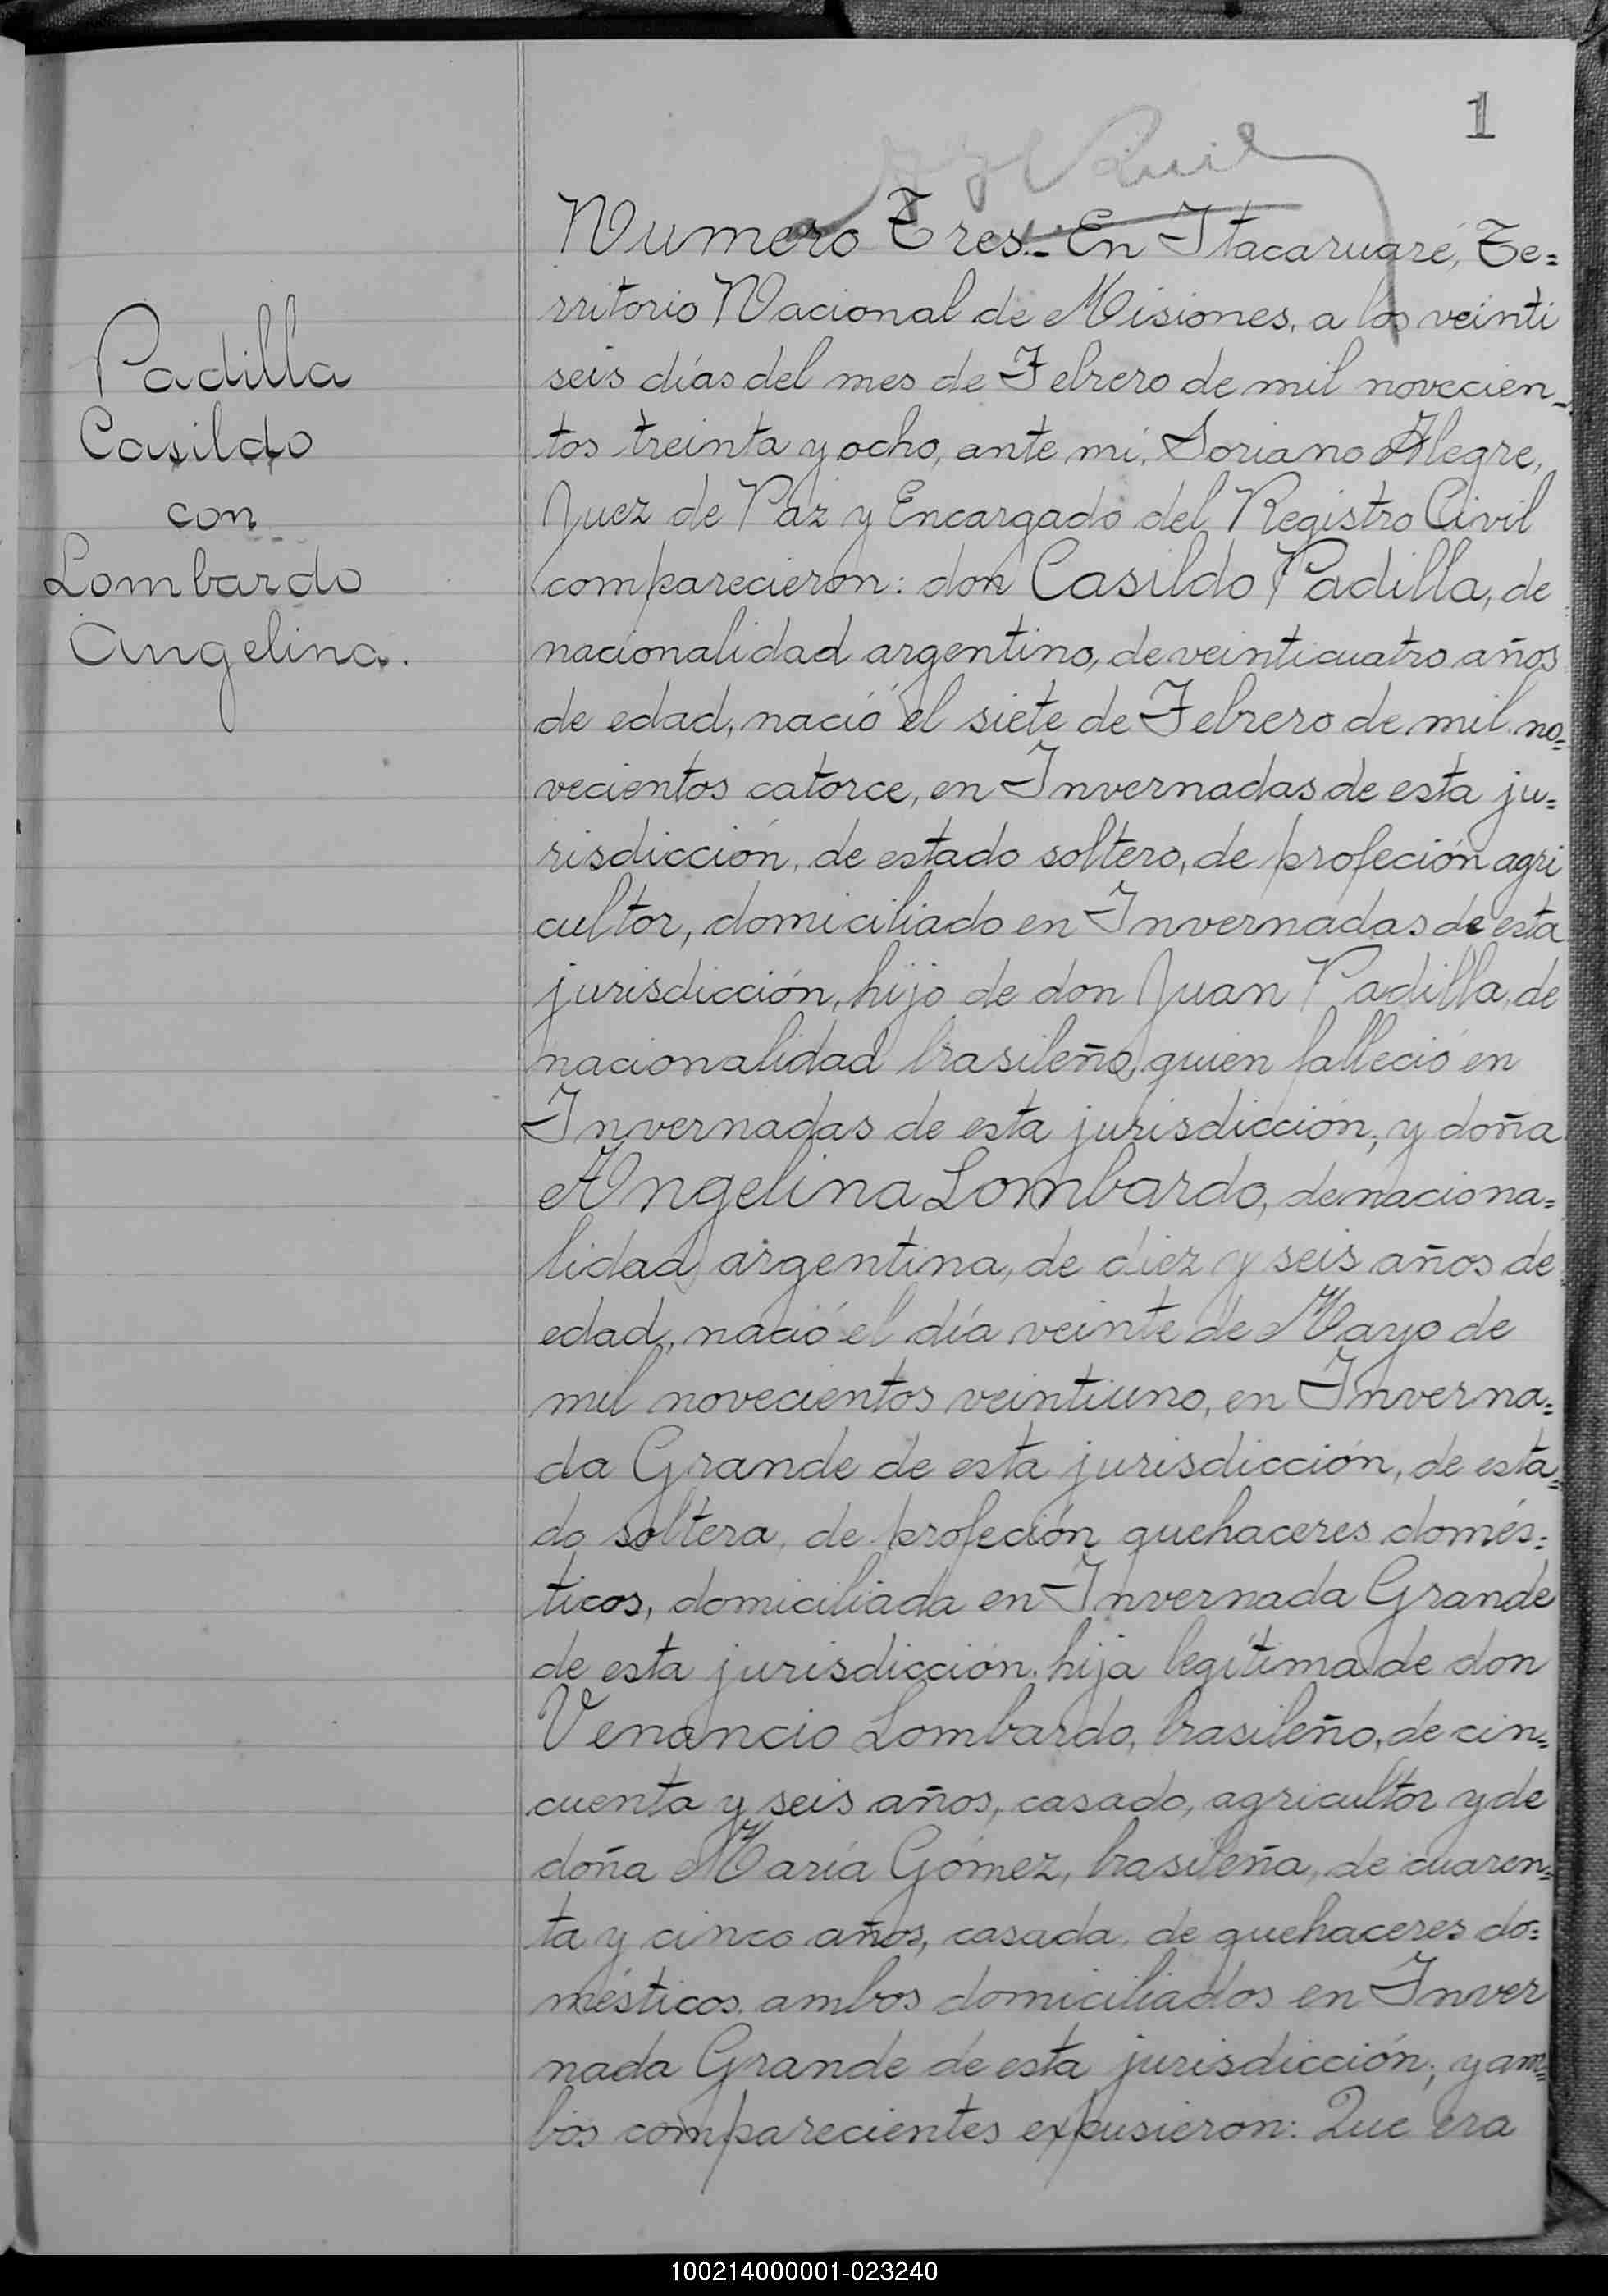 1
Padilla
Casildo
con
Lombardo
Angelina.
Numero Tres.- En Itacaruaré, Te=
rritorio Nacional de Misiones, a los veinti
seis días del mes de Febrero de mil novecien-
tos treinta y ocho, ante mi, Soriano Alegre,
Juez de Paz y Encargado del Registro Civil
comparecieron: don Casildo Padilla, de
nacionalidad argentino, de veinticuatro años
de edad, nació el siete de Febrero de mil no=
vecientos catorce, en Invernadas de esta ju=
risdicción, de estado soltero, de profeción agri
cultor, domiciliado en Invernadas de esta
jurisdicción, hijo de don Juan Padilla, de
nacionalidad brasileño, quien falleció en
Invernadas de esta jurisdicción; y doña
Angelina Lombardo, de naciona=
lidad argentina, de diez y seis años de
edad, nació el día veinte de Mayo de
mil novecientos veintiuno, en Inverna=
da Grande de esta jurisdicción, de esta=
do soltera, de profeción quehaceres domés=
ticos, domiciliada en Invernada Grande
de esta jurisdicción, hija legítima de don
Venancio Lombardo, brasileño, de cin=
cuenta y seis años, casado, agricultor y de
doña María Gómez, brasileña, de cuaren=
ta y cinco años, casada, de quehaceres do=
mésticos, ambos domiciliados en Inver
nada Grande de esta jurisdicción; y am=
bos comparecientes expusieron: Que era
100214000001-023240